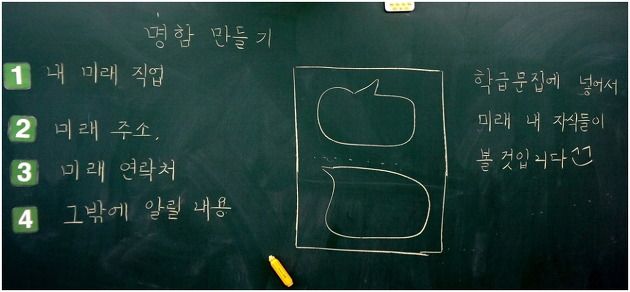 명함 만들기
1 내 미래 직업
2 미래 주소,
3 미래 연락처
4 그밖에 알릴 내용
학급문집에 넣어서
미래 내 자식들이
볼 것입니다